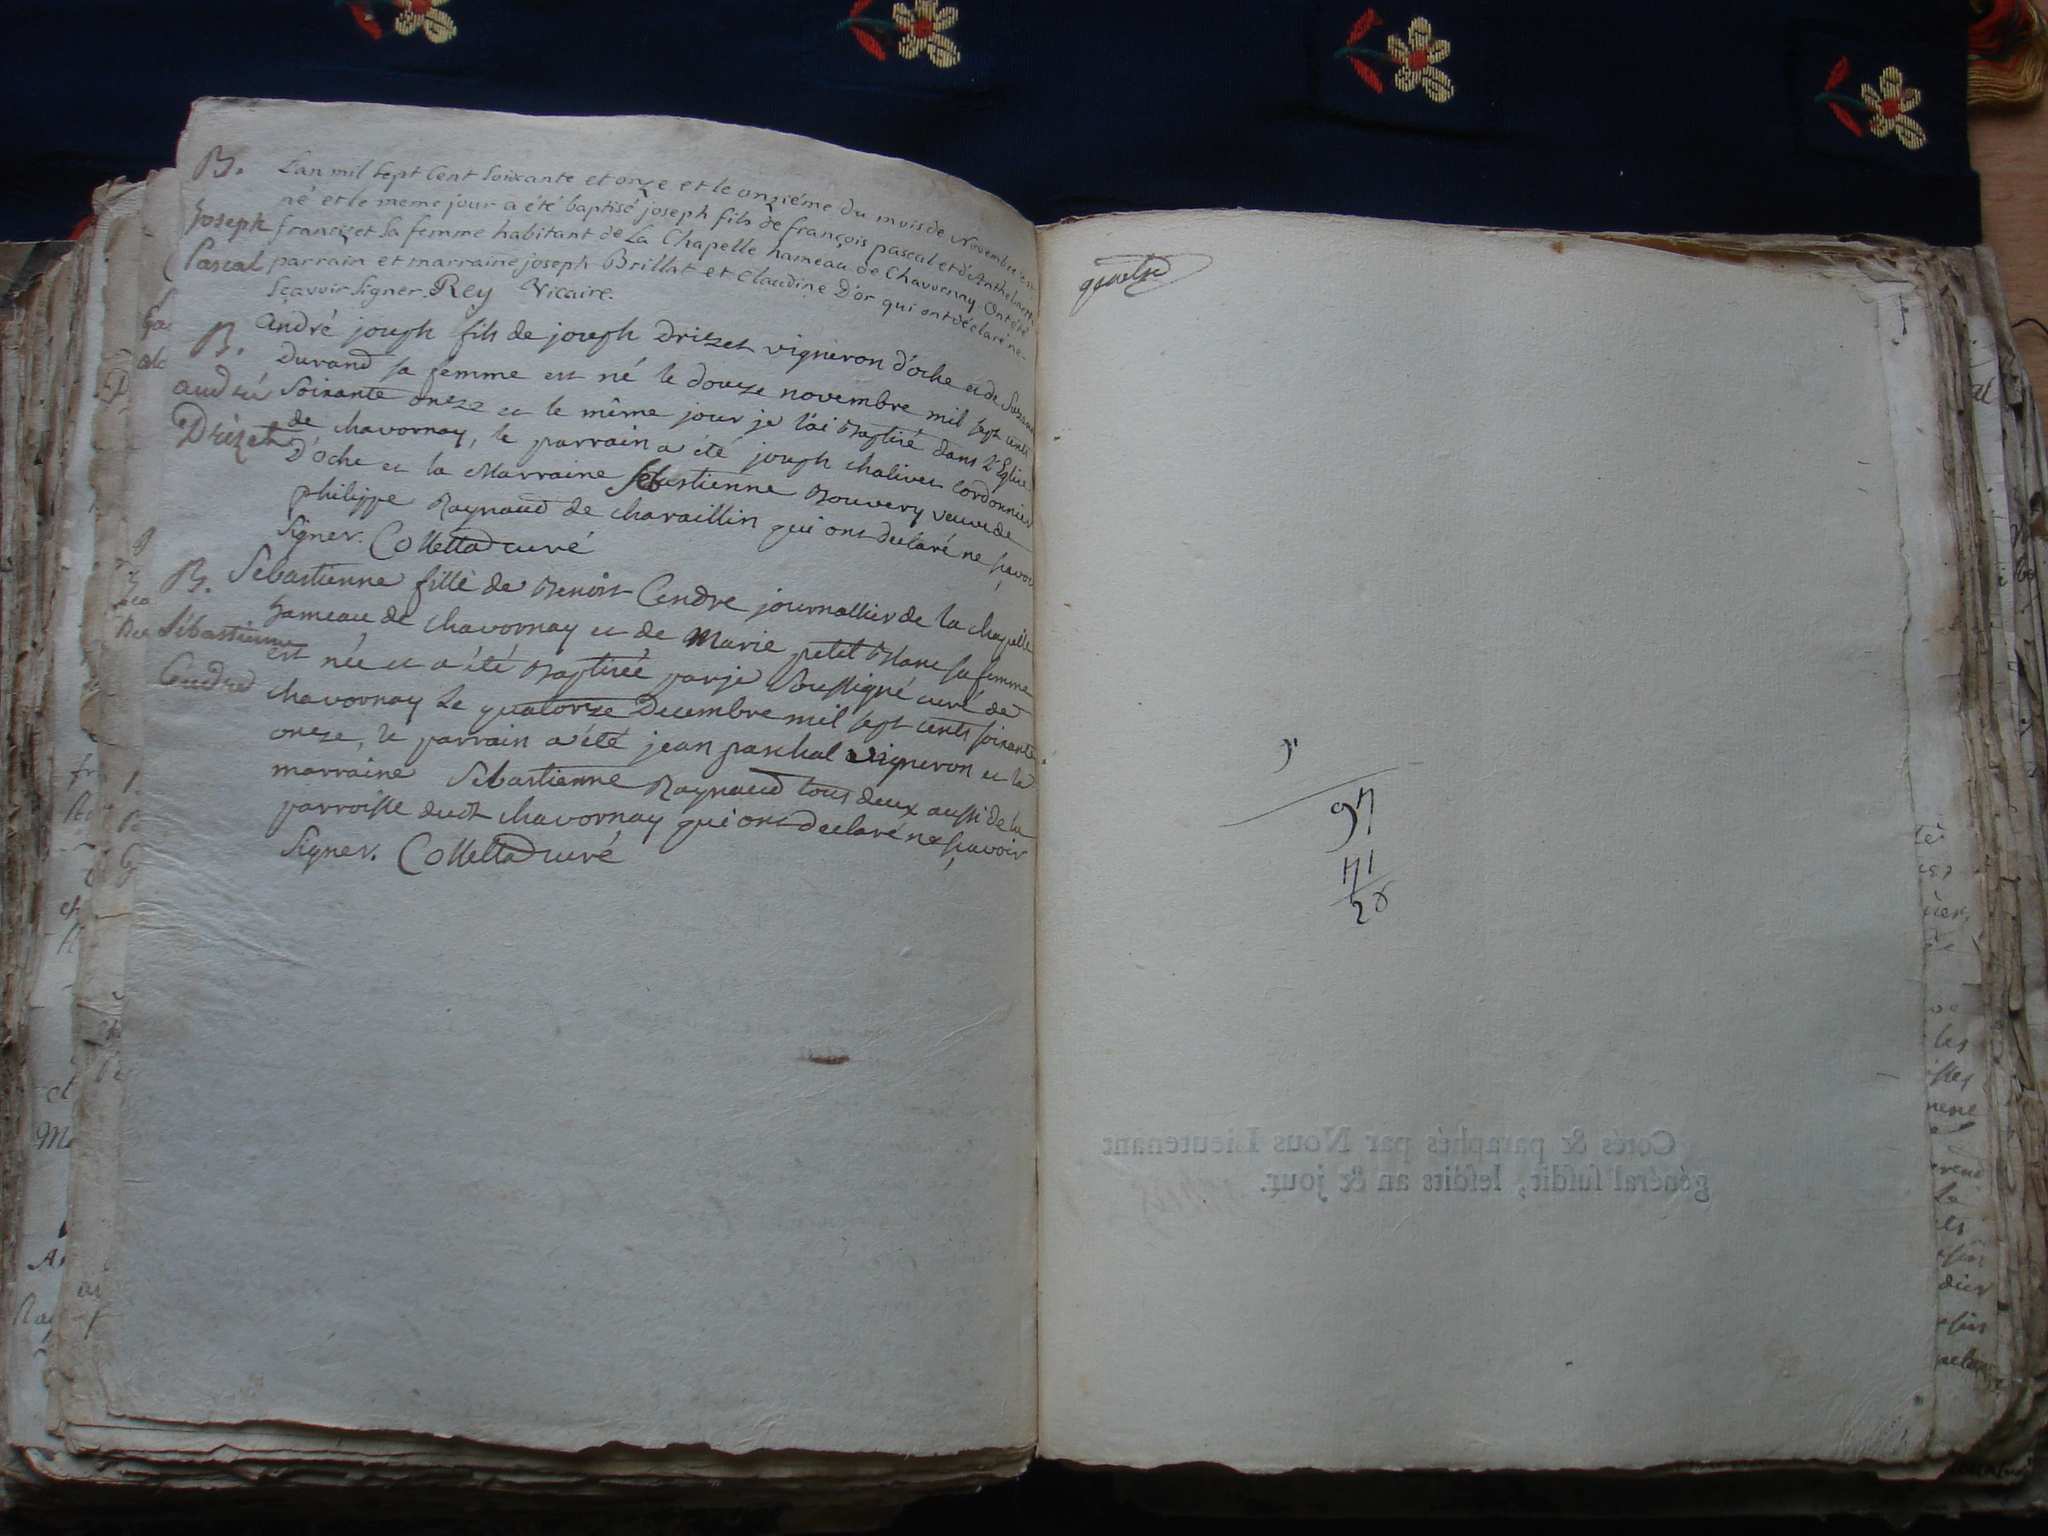 B. Lan mil sept Cent Soixante et onze et le onziéme du mois de Novembre est
né et le meme jour a été baptisé joseph fils de françois pascal et d'Anthelmette
Joseph francizet Sa femme habitant de La Chapelle hameau de Chavornay. Ont été
Pascal parrain et marraine joseph Brillat et Claudine D'or qui ont déclaré ne
sçavoir signer. Rey Vicaire.
B. André joseph fils de joseph Drizet vigneron d'oche et de Suzanne
Durand sa femme est né le douze novembre mil sept cents
andré Soixante onze et le même jour je l'ai Baptisé dans L'Eglise
Drizet de chavornay, le parrain a été joseph chalivet Cordonnier
D'oche et la Marraine Sebastienne Bouvery veuve de
philippe Raynaud de charaillin qui ont declaré ne sçavoir
Signer. Collettad curé
B. Sébastienne fille de Benoit Cendre journallier de la chapelle
hameau de chavornay et de Marie petit Blanc sa femme
Sébastienne est née et a été Baptisée par je Soussigné curé de
Cendre chavornay Le quatorze Decembre mil sept cents soixante
onze, le parrain a été jean paschal vigneron et la
marraine Sebastienne Raynaud tous deux aussi de la
parroisse dudt chavornay qui ont declaré ne sçavoir
Signer. Collettad curé
97
171
26
Cotés & paraphés par Nous Lieutenant
général susdit, lesdits an & jour.